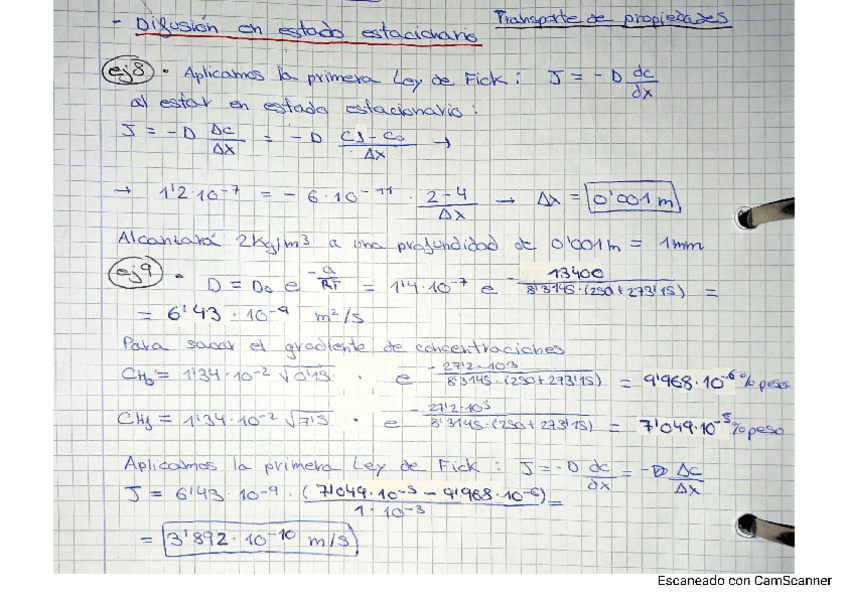 Transporte de propiedades
- Difusión en estado estacionario
ej8 • Aplicamos la primera Ley de Fick: J = -D dc/dx
al estar en estado estacionario:
J = -D Δc/Δx = -D CS-Co/Δx →
→ 1'2·10^-7 = -6·10^-11 · 2-4/Δx → Δx = 0'001 m
Alcantará 2Kg/m³ a una profundidad de 0'001m = 1mm
ej9 • D = Do e^-Q/RT = 1'4·10^-7 e^-13400/8'3145·(250+273'15) =
= 6'43 · 10^-9 m²/s
Para sacar el gradiente de concentraciones
CHo = 1'34·10^-2 √0'15 · e^-27'2·10^3/8'3145·(250+273'15) = 9'968·10^-6 % peso
CHs = 1'34·10^-2 √7'5 · e^-27'2·10^3/8'3145·(250+273'15) = 7'049·10^-5 % peso
Aplicamos la primera Ley de Fick: J = -D dc/dx = -D Δc/Δx
J = 6'43·10^-9 · (7'049·10^-5 - 9'968·10^-6)/1·10^-3 =
= 3'892·10^-10 m/s
Escaneado con CamScanner